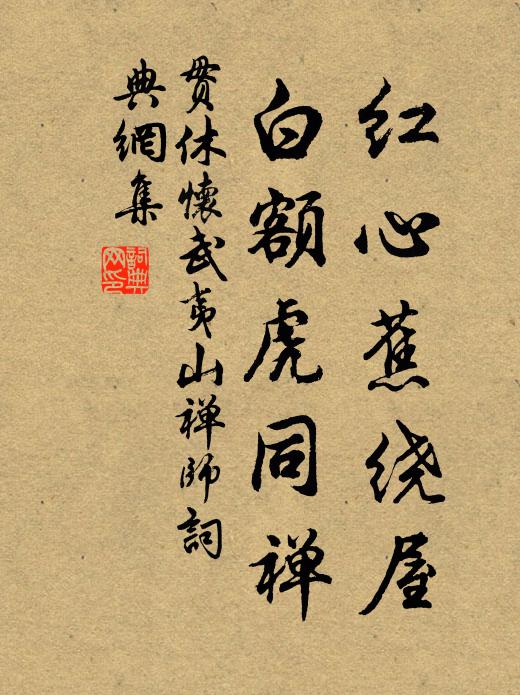 红心蕉绕屋
白额虎同禅
贯休怀武夷山禅师词
典網集
詞典
网印